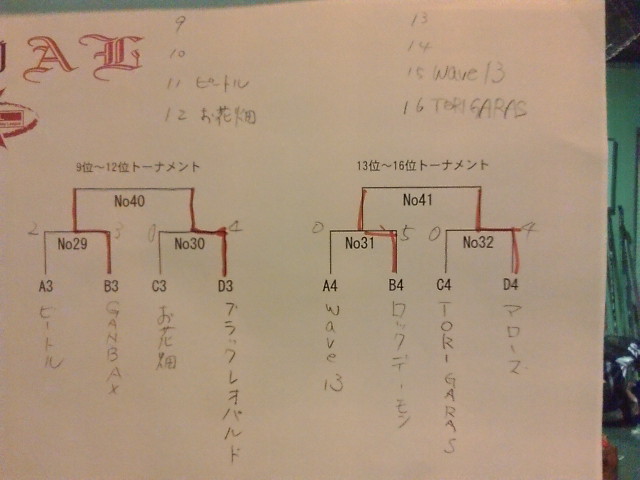 UAL
9
10
11 ビートル
12 お花畑
13
14
15 wave 13
16 TORIGARAS
9位～12位トーナメント
No40
2 No29 3
0 No30 4
A3 B3 C3 D3
ビートル
GANBAX
お花畑
ブラックレオパルド
13位～16位トーナメント
No41
0 No31 5
0 No32 4
A4 B4 C4 D4
wave 13
ロックデーモン
TORIGARAS
マローズ